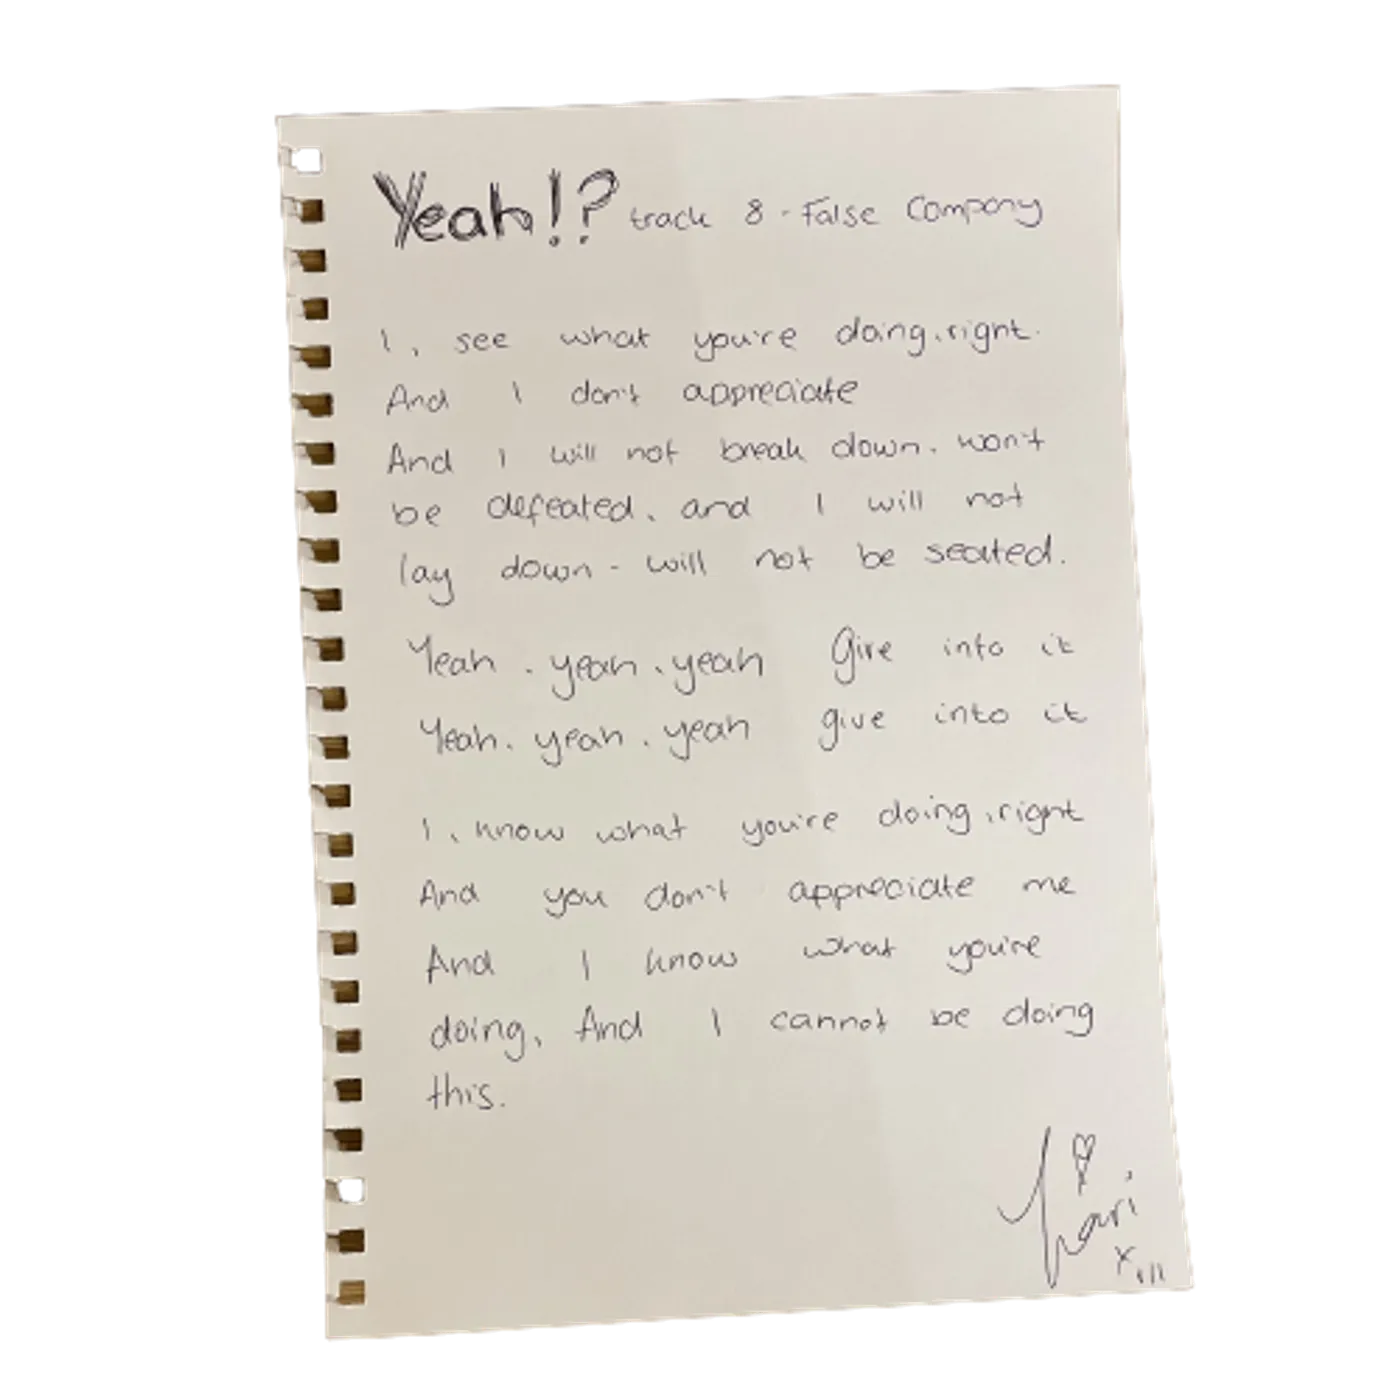 Yeah!? track 8 - False Company
I, see what you're doing, right.
And I don't appreciate
And I will not break down. won't
be defeated, and I will not
lay down - will not be seated.
Yeah, yeah, yeah Give into it
Yeah, yeah, yeah give into it
I, know what you're doing, right
And you don't appreciate me
And I know what you're
doing, And I cannot be doing
this.
Hari
x